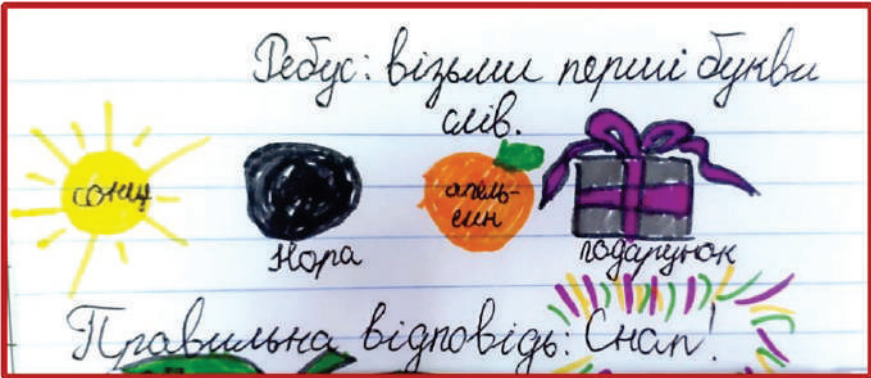 Ребус: візьми перші букви
слів.
сонце
апель-
син
Нора
подарунок
Правильна відповідь: Снап!